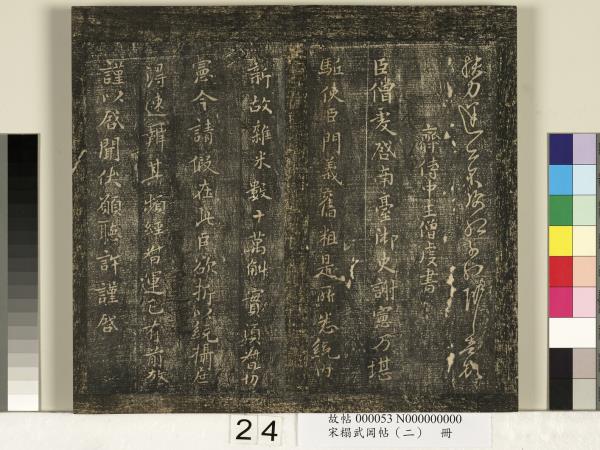 齊侍中王僧虔書
臣僧虔啓南臺御史謝憲方堪
驅使臣門義舊粗是所悉統內
新故雜米數十萬斛實須督切
憲今請假在此臣欲折以統攝虛
得速辦其頻經督運已有前效
謹以啓聞伏願聽許謹啓
24
故帖 000053 N000000000
宋榻武岡帖(二) 冊